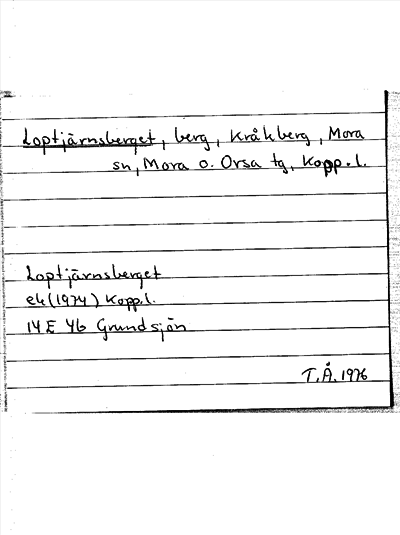 Loptjärnsberget, berg, Kråkberg, Mora
sn, Mora o. Orsa tg, Kopp.l.
Loptjärnsberget
ek (1974) Kopp.l.
14 E 4b Grundsjön
T.Å. 1976